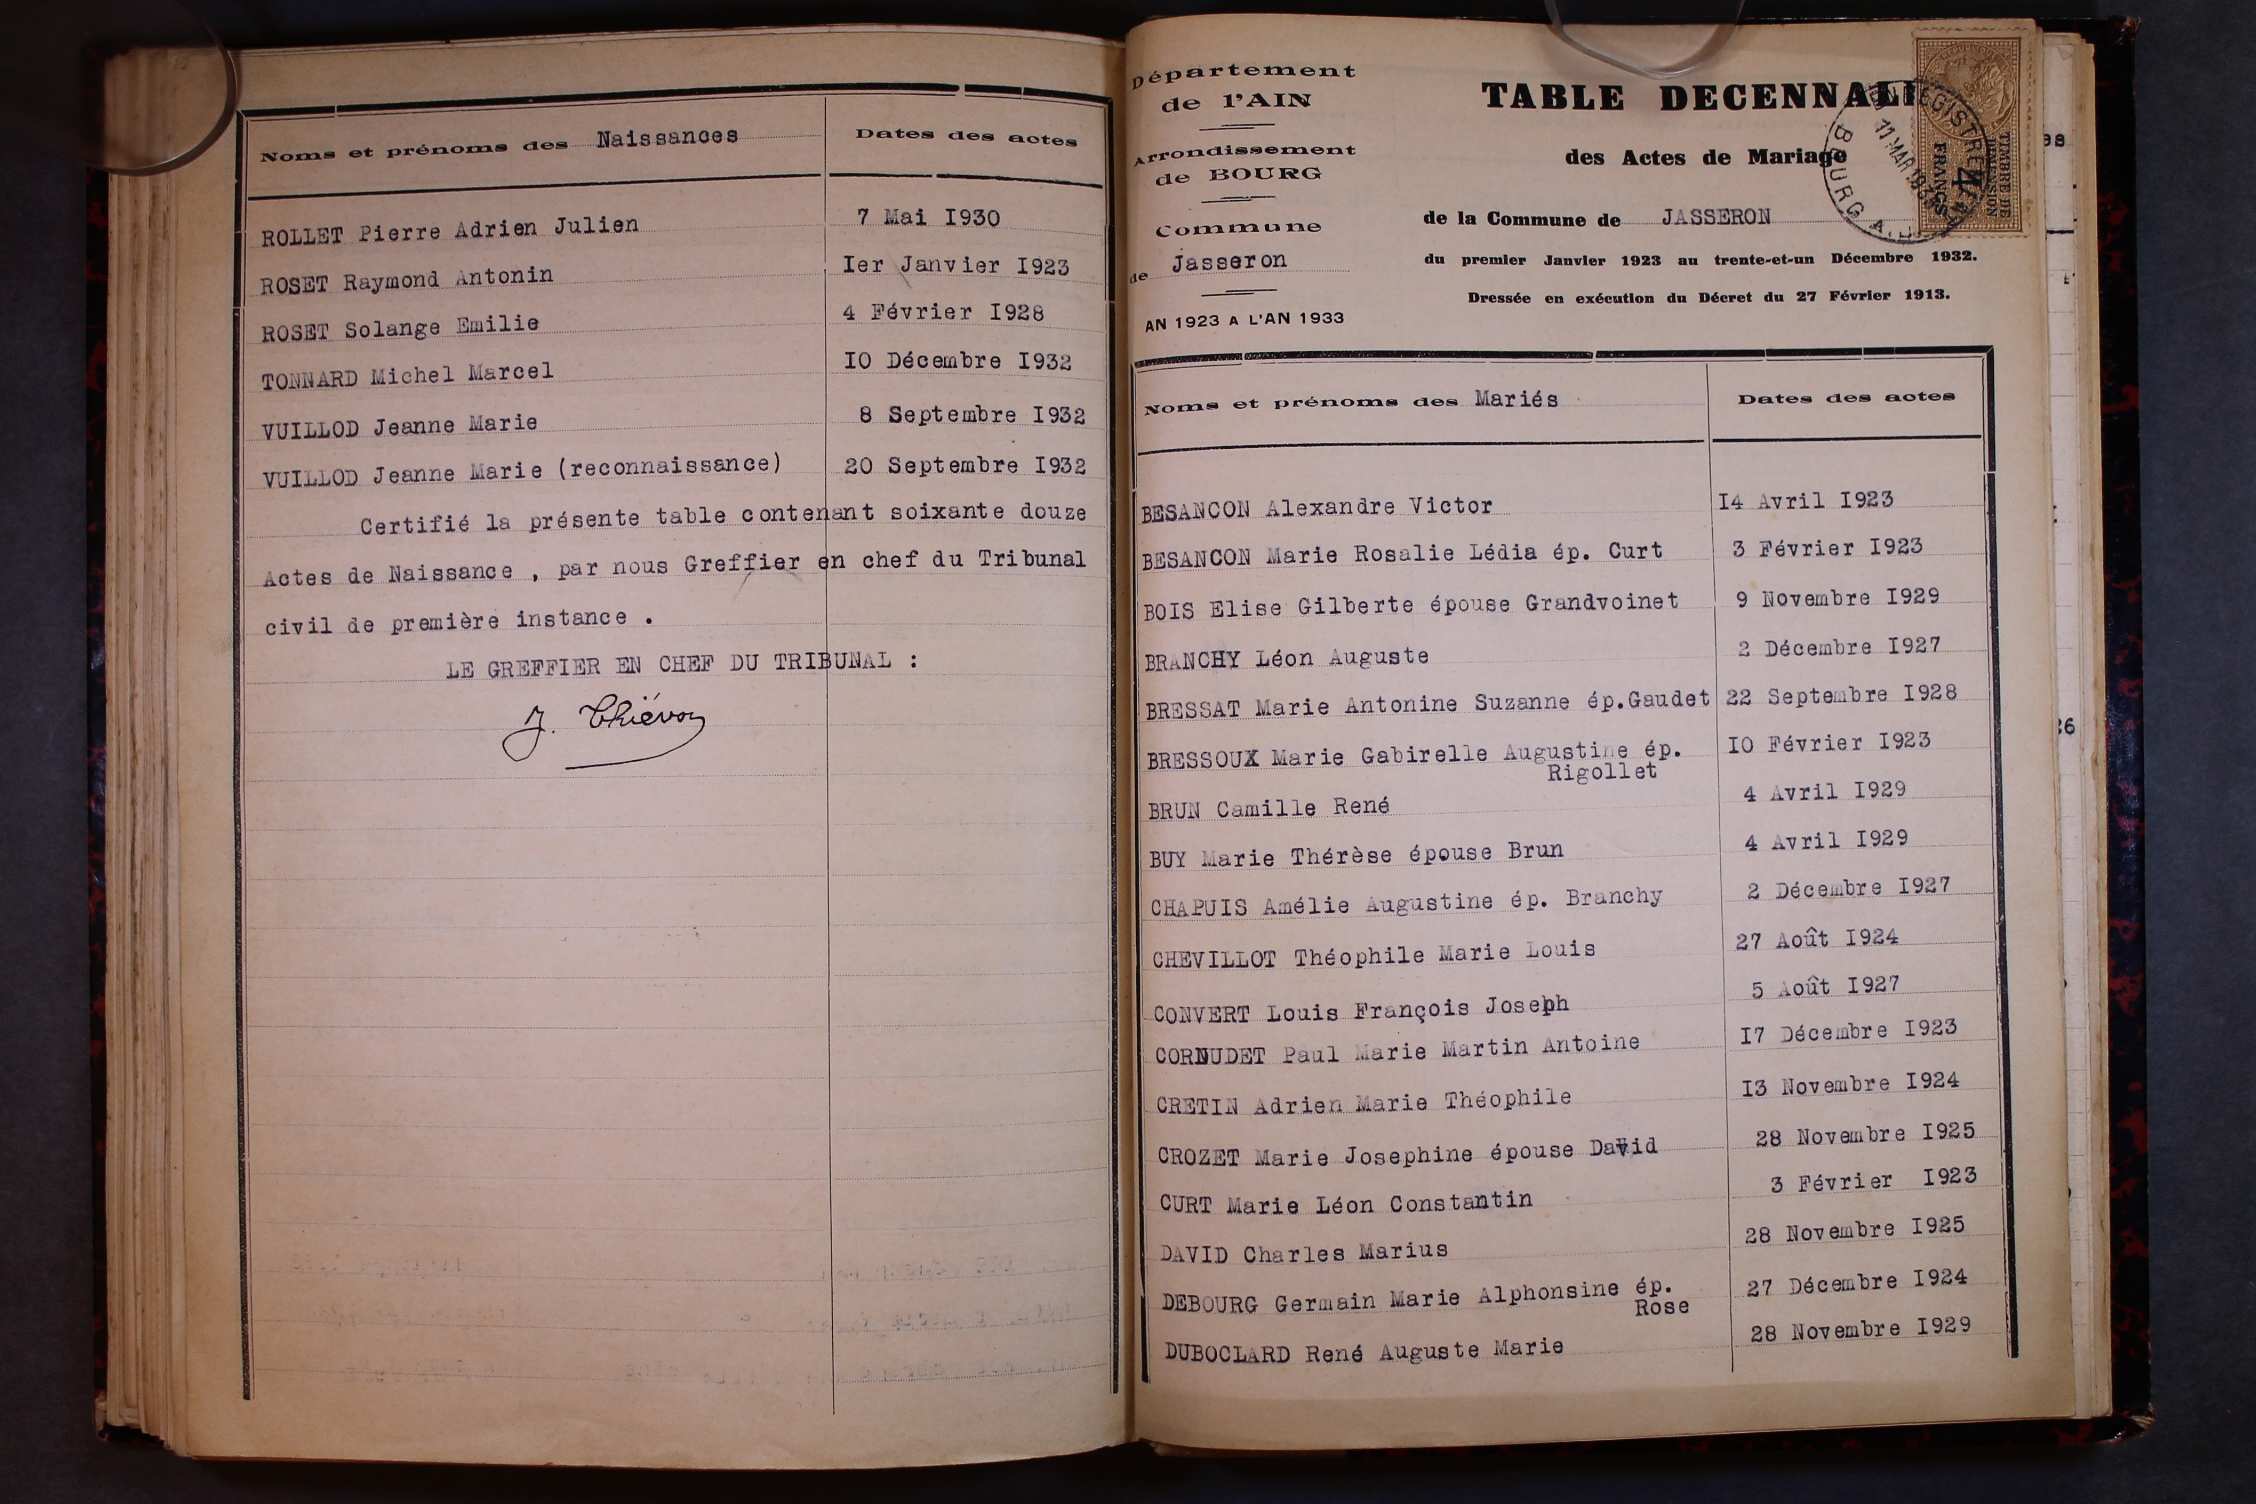 Noms et prénoms des Naissances Dates des actes
ROLLET Pierre Adrien Julien 7 Mai I930
ROSET Raymond Antonin Ier Janvier I923
ROSET Solange Emilie 4 Février I928
TONNARD Michel Marcel IO Décembre I932
VUILLOD Jeanne Marie 8 Septembre I932
VUILLOD Jeanne Marie (reconnaissance) 20 Septembre I932
Certifié la présente table contenant soixante douze
Actes de Naissance , par nous Greffier en chef du Tribunal
civil de première instance .
LE GREFFIER EN CHEF DU TRIBUNAL :
J. Thiévon
Département
de l'AIN
Arrondissement
de BOURG
Commune
de Jasseron
AN 1923 A L'AN 1933
TABLE DECENNALE
des Actes de Mariage
de la Commune de JASSERON
du premier Janvier 1923 au trente-et-un Décembre 1932.
Dressée en exécution du Décret du 27 Février 1913.
TIMBRE DE
DIMENSION
4
FRANCS
11 MAR
BOURG
Noms et prénoms des Mariés Dates des actes
BESANCON Alexandre Victor I4 Avril I923
BESANCON Marie Rosalie Lédia ép. Curt 3 Février I923
BOIS Elise Gilberte épouse Grandvoinet 9 Novembre I929
BRANCHY Léon Auguste 2 Décembre I927
BRESSAT Marie Antonine Suzanne ép.Gaudet 22 Septembre I928
BRESSOUX Marie Gabirelle Augustine ép. IO Février I923
Rigollet
BRUN Camille René 4 Avril I929
BUY Marie Thérèse épouse Brun 4 Avril I929
CHAPUIS Amélie Augustine ép. Branchy 2 Décembre I927
CHEVILLOT Théophile Marie Louis 27 Août I924
CONVERT Louis François Joseph 5 Août I927
CORNUDET Paul Marie Martin Antoine I7 Décembre I923
CRETIN Adrien Marie Théophile I3 Novembre I924
CROZET Marie Josephine épouse David 28 Novembre I925
CURT Marie Léon Constantin 3 Février I923
DAVID Charles Marius 28 Novembre I925
DEBOURG Germain Marie Alphonsine ép. 27 Décembre I924
Rose
DUBOCLARD René Auguste Marie 28 Novembre I929